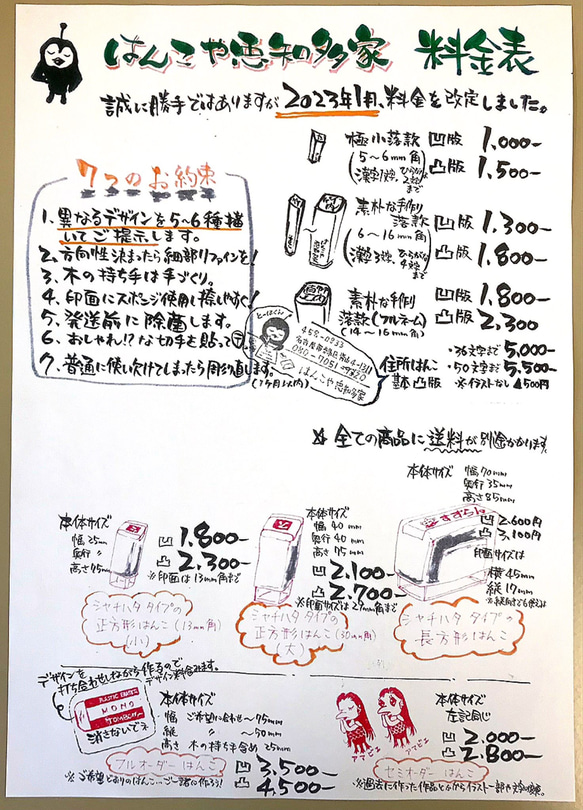 はんこや恵知多家 料金表
誠に勝手ではありますが2023年1月、料金を改定しました。
極小落款 凹版 1,000-
(5〜6mm角 凸版 1,500-
漢字1文字、ひらがな2文字まで)
7つのお約束
1、異なるデザインを5〜6種描
いてご提示します。
2、方向性決まったら細部リファインを!
3、木の持ち手は手づくり。
4、印面にスポンジ使用し捺しやすく!
5、発送前に除菌します。
6、おしゃれ!?な切手を貼って〒
7、普通に使い欠けてしまったら彫り直します。
(1ヶ月以内)
素朴な手作り
落款 凹版 1,300-
(6〜16mm角 凸版 1,800-
漢字3文字、ひらがな4文字まで)
素朴な手作り 凹版 1,800-
落款(フルネーム) 凸版 2,300
(14〜16mm角)
とーはくん!
458-0833
はんこや恵知多家
住所はんこ
基本凸版
・36文字まで 5,000-
・50文字まで 5,500-
※イラストなし 4500円
全ての商品に送料が別途かかります。
本体サイズ
幅25mm
奥行 〃
高さ95mm
凹 1.800-
凸 2,300-
※印面は13mm角まで
シャチハタタイプの
正方形はんこ(13mm角)
(小)
本体サイズ
幅 40mm
奥行 40mm
高さ 95mm
凹 2,100-
凸 2,700-
※印面サイズは29mm角まで
シャチハタタイプの
正方形はんこ(30mm角)
(大)
本体サイズ 幅70mm
奥行35mm
高さ85mm
すずらん
凹 2,600円
凸 3,100円
印面サイズは
横45mm
縦17mm
シャチハタタイプの
長方形はんこ
デザインを
打ち合わせしながら作るので
デザイン料含みます。
PLASTIC ERASER
MONO
TOMBOW
消さないでネ
本体サイズ
幅 ご希望に合わせ〜95mm
縦 〃 〜50mm
高さ 木の持ち手含め 25mm
フルオーダーはんこ
凹 3,500-
凸 4,500-
※ご希望どおりのはんこ…ご一緒に作ろう!
アマビエ
アマビエ
本体サイズ
左と同じ
凹 2,000-
凸 2,800-
セミオーダーはんこ